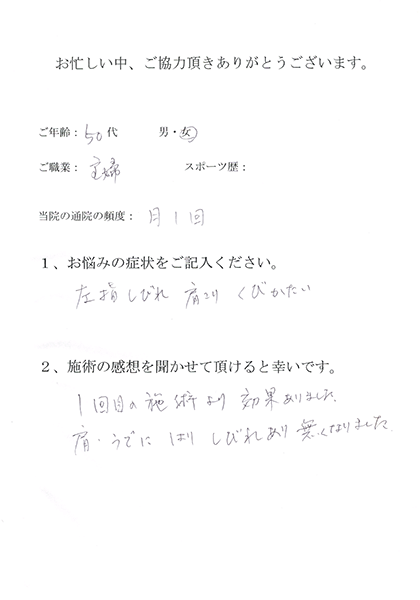 お忙しい中、ご協力頂きありがとうございます。
ご年齢：50代　男・女
ご職業：主婦　スポーツ歴：
当院の通院の頻度：月1回
１、お悩みの症状をご記入ください。
左指しびれ　肩こり　くびかたい
２、施術の感想を聞かせて頂けると幸いです。
1回目の施術より　効果ありました
肩・うでに　はり　しびれあり　無くなりました